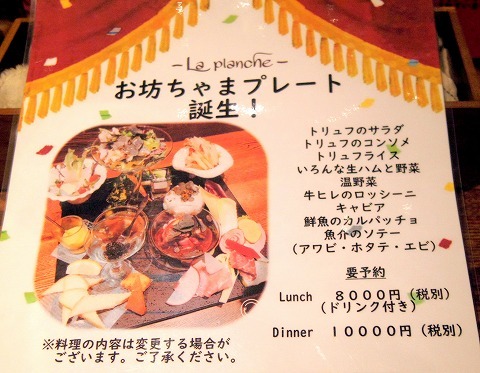 -La planche-
お坊ちゃまプレート
誕生！
トリュフのサラダ
トリュフのコンソメ
トリュフライス
いろんな生ハムと野菜
温野菜
牛ヒレのロッシーニ
キャビア
鮮魚のカルパッチョ
魚介のソテー
(アワビ・ホタテ・エビ)
要予約
Lunch 8000円(税別)
(ドリンク付き)
Dinner 10000円(税別)
※料理の内容は変更する場合が
ございます。ご了承ください。